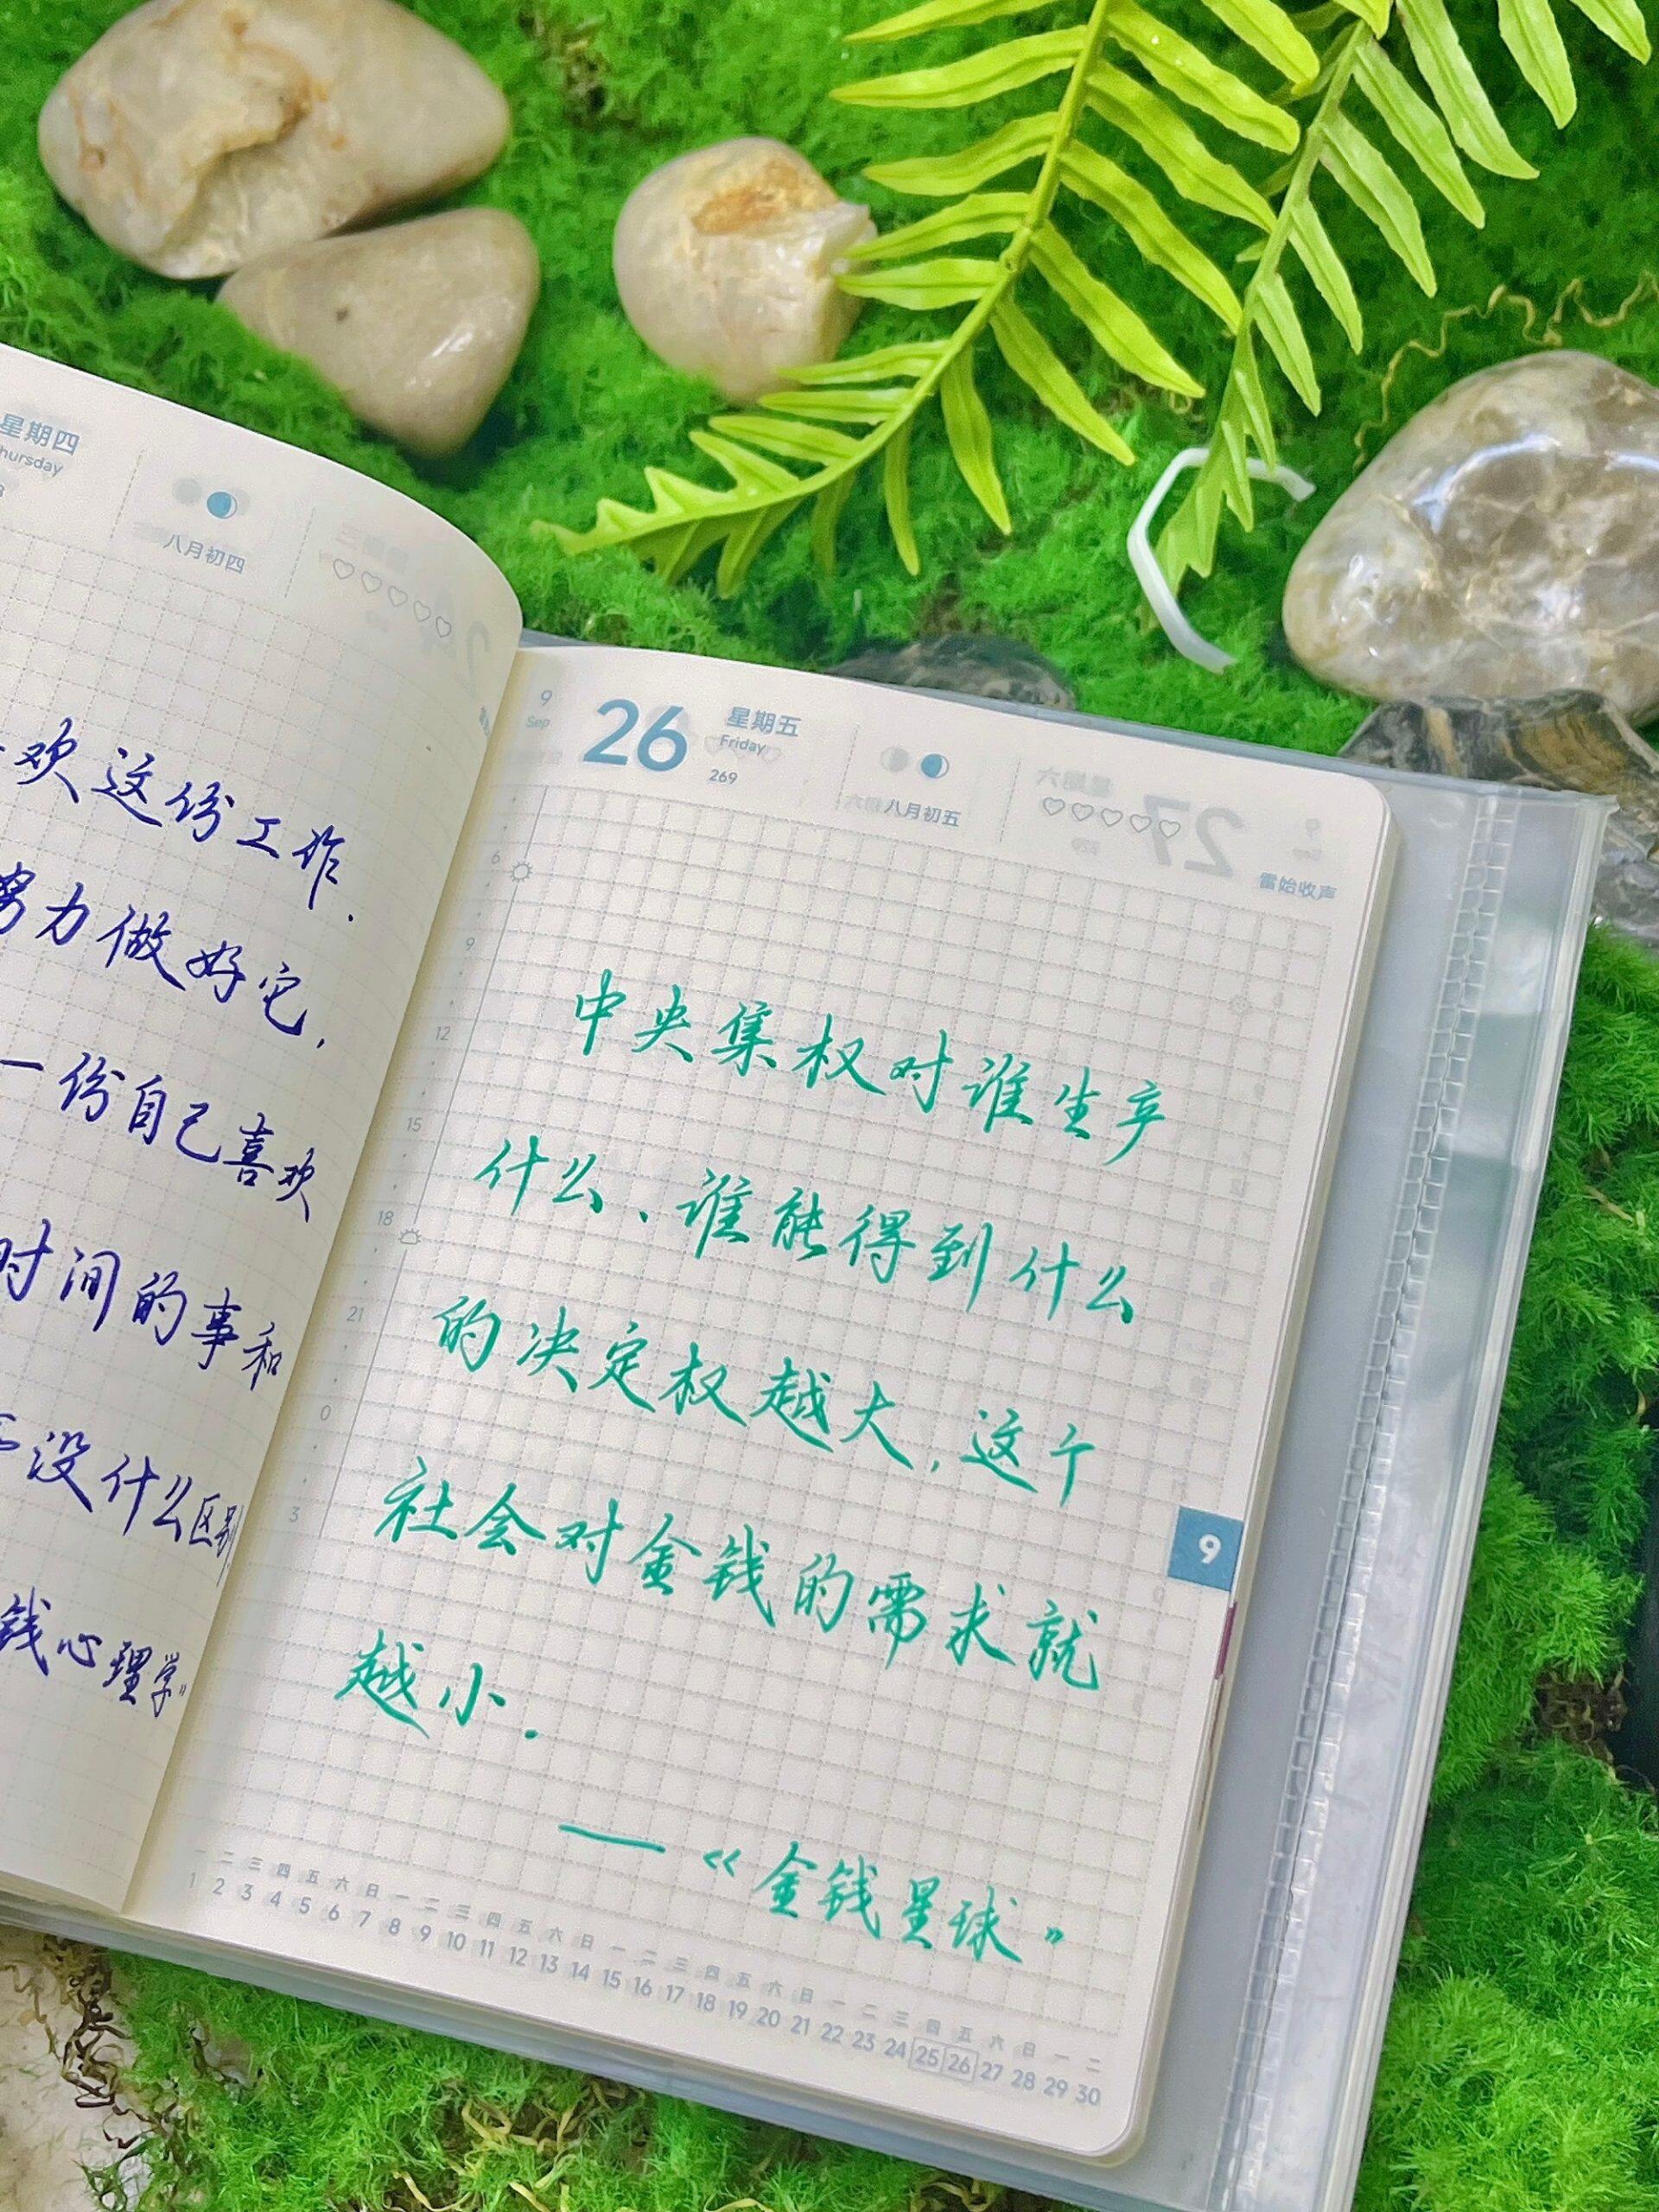 星期四
hursday
八月初四
欢这份工作.
努力做好它,
一份自己喜欢
时间的事和
没什么区别
钱心理学》
9
Sep
26
星期五
Friday
269
八月初五
雷始收声
6
9
12
15
18
21
0
3
中央集权对谁生产
什么、谁能得到什么
的决定权越大,这个
社会对金钱的需求就
越小.
——《金钱星球》
9
一 二 三 四 五 六 日 一 二 三 四 五 六 日 一 二 三 四 五 六 日 一 二 三 四 五 六 日 一 二
1 2 3 4 5 6 7 8 9 10 11 12 13 14 15 16 17 18 19 20 21 22 23 24 25 26 27 28 29 30